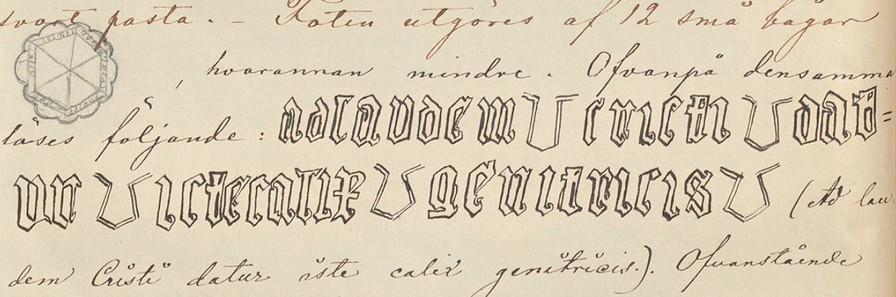 svart pasta. – Foten utgöres af 12 små bågar
, hvarannan mindre. Ofvanpå densamma
läses följande: adlaudem cricti dad=
ur ictecalix genitricis (Ad lau
dem Cristi datur iste calix genitricis.). Ofvanstående